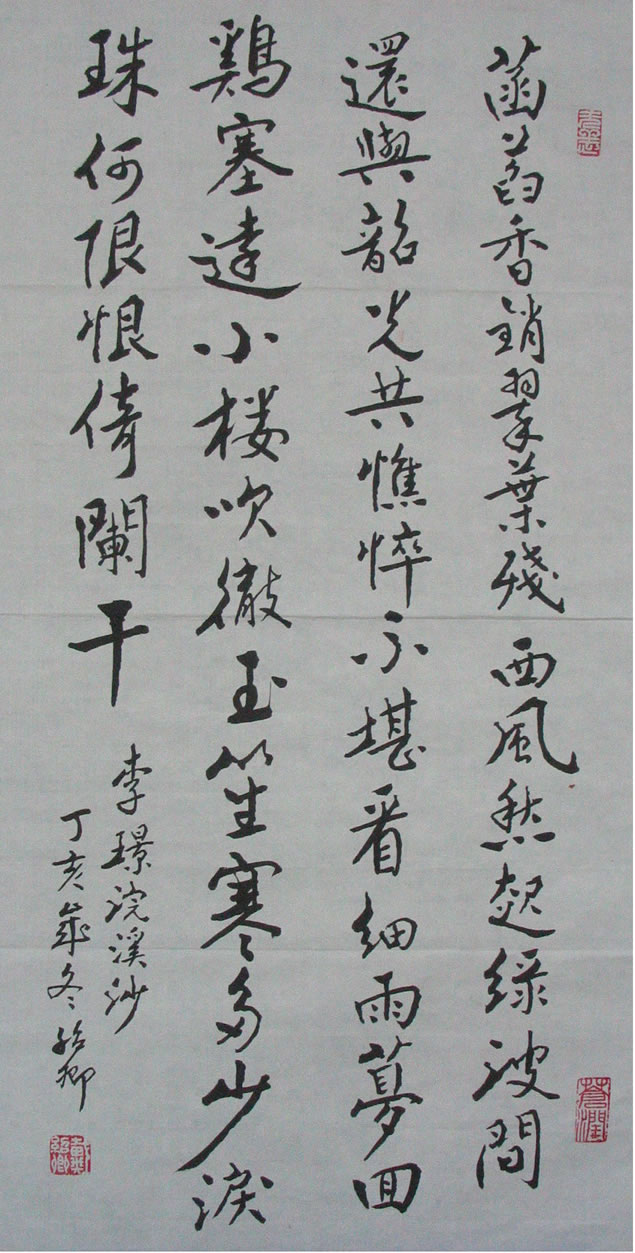 菡萏香銷翠葉殘西風愁起綠波間
還與韶光共憔悴不堪看細雨夢回
鷄塞遠小楼吹徹玉笙寒多少淚
珠何限恨倚闌干
李璟浣溪沙
丁亥歲冬紹卿
蒼潤